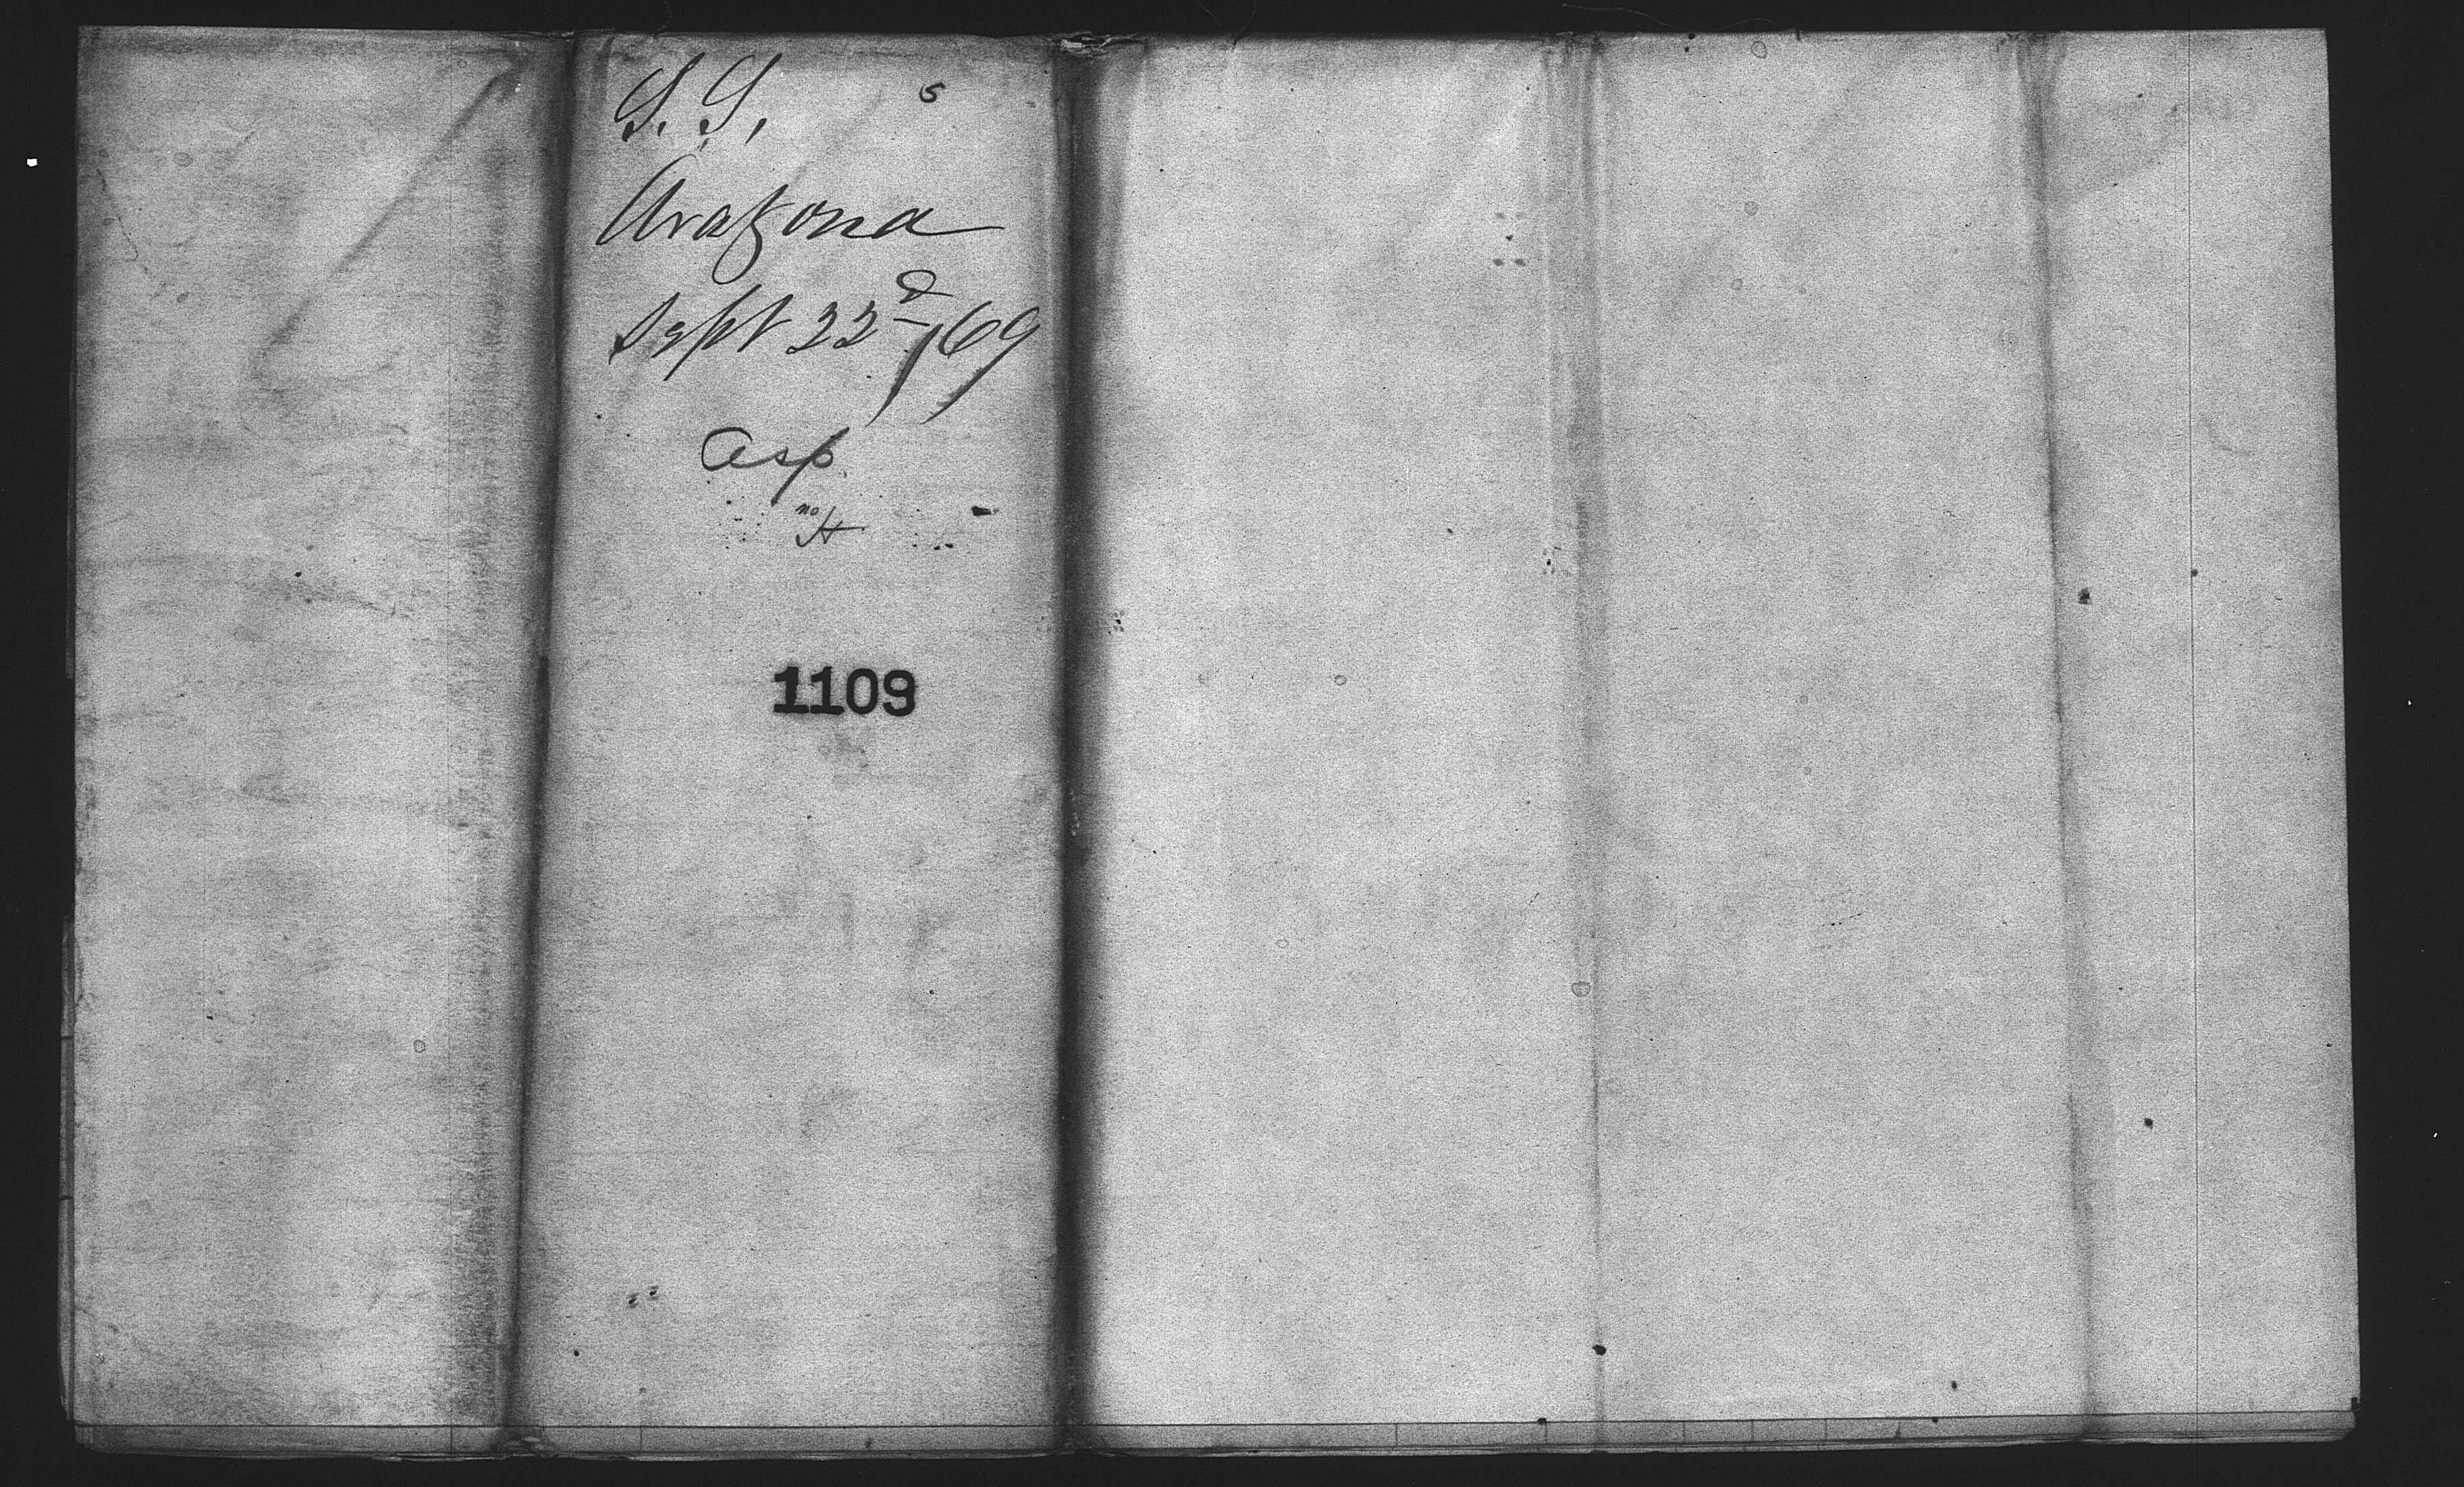 S. S. 5
Aragona
Sept 22d /69
Asp.
no H
1109